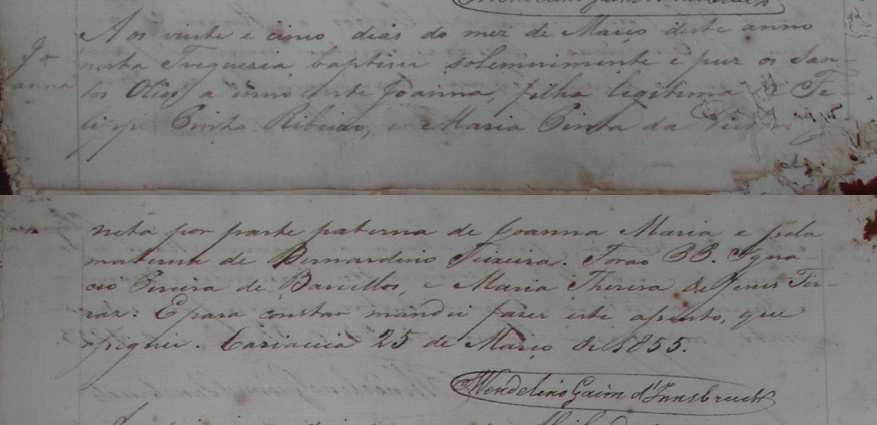 Wendelino Gaim d'Innsbruck
Aos vinte e cinco dias do mez de Março deste anno
Jo
anna
nesta Freguezia baptizei solemnimente e puz os San-
tos Olios a innocente Joanna, filha legitima de Fe-
lippe Pinto Ribeiro, e Maria Pinta da
neta por parte paterna de Joanna Maria e pela
materna de Bernardino Teixeira. Forão PP. Igna-
cio Pereira de Barcellos, e Maria Thereza de Jesus Fer-
raz. E para constar mandei fazer este assento, que
assignei. Cariacica 25 de Março de 1855.
Wendelino Gaim d'Innsbruck